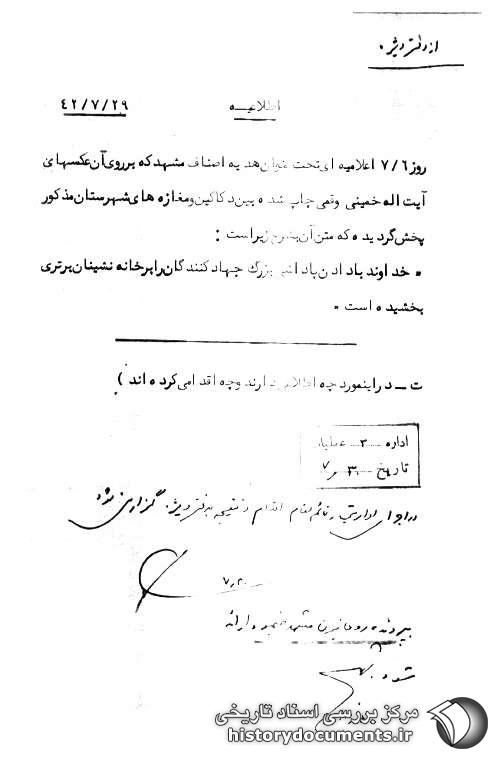 از دفتر ویژه.
اطلاعیــه
۴۲/۷/۲۹
روز ۷/۶ اعلامیه ای تحت عنوان هدیه اصناف مشهد که برروی آن عکسهای
آیت اله خمینی وقمی چاپ شده بین دکاکین و مغازه های شهرستان مذکور
پخش گردیده که متن آن بشرح زیر است :
• خداوند با دادن پاداش بزرگ جهاد کنندگان را بر خانه نشینان برتری
بخشیده است •
ت ــ در اینمورد چه اطلاعی دارند وچه اقدامی کرده اند )
اداره ۳ عملیا
تاریخ ۳۰ ر ۷
اقدام و نتیجه بدفتر ویژه گزارش شده
۷٫۳۰
پرونده روحانیون مشهد ضمیمه و ارائه
شود.
مرکز بررسی اسناد تاریخی
historydocuments.ir